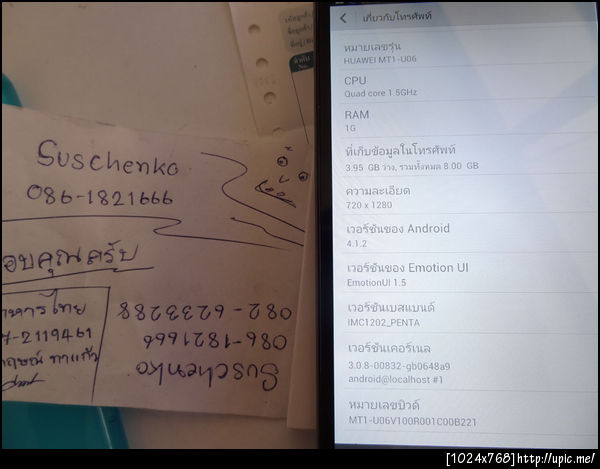 Suschenko
086-1821666
อบคุณครับ
าหารไทย
7-2119461
ทาแก้ว
082-6233288
086-1821666
Suschenko
เกี่ยวกับโทรศัพท์
หมายเลขรุ่น
HUAWEI MT1-U06
CPU
Quad core 1.5GHz
RAM
1G
ที่เก็บข้อมูลในโทรศัพท์
3.95 GB ว่าง, รวมทั้งหมด 8.00 GB
ความละเอียด
720 x 1280
เวอร์ชันของ Android
4.1.2
เวอร์ชันของ Emotion UI
EmotionUI 1.5
เวอร์ชันเบสแบนด์
IMC1202_PENTA
เวอร์ชันเคอร์เนล
3.0.8-00832-gb0648a9
android@localhost #1
หมายเลขบิวด์
MT1-U06V100R001C00B221
[1024x768]http://upic.me/